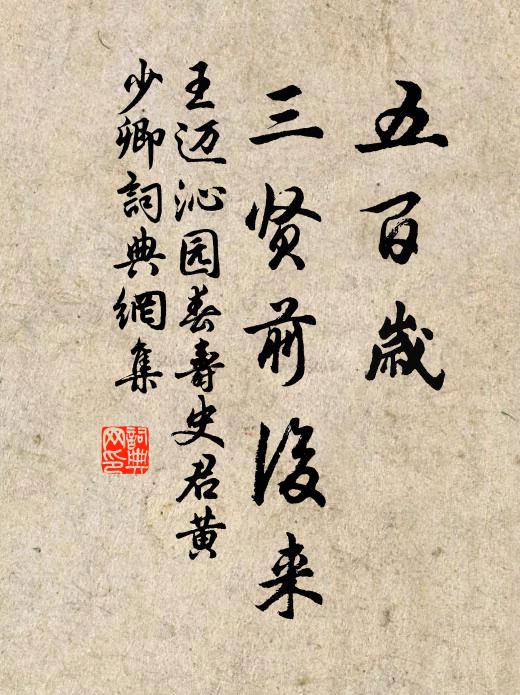 五百歲
三贤前後来
王迈沁园春壽史君黄
少卿詞典網集
詞典
网印